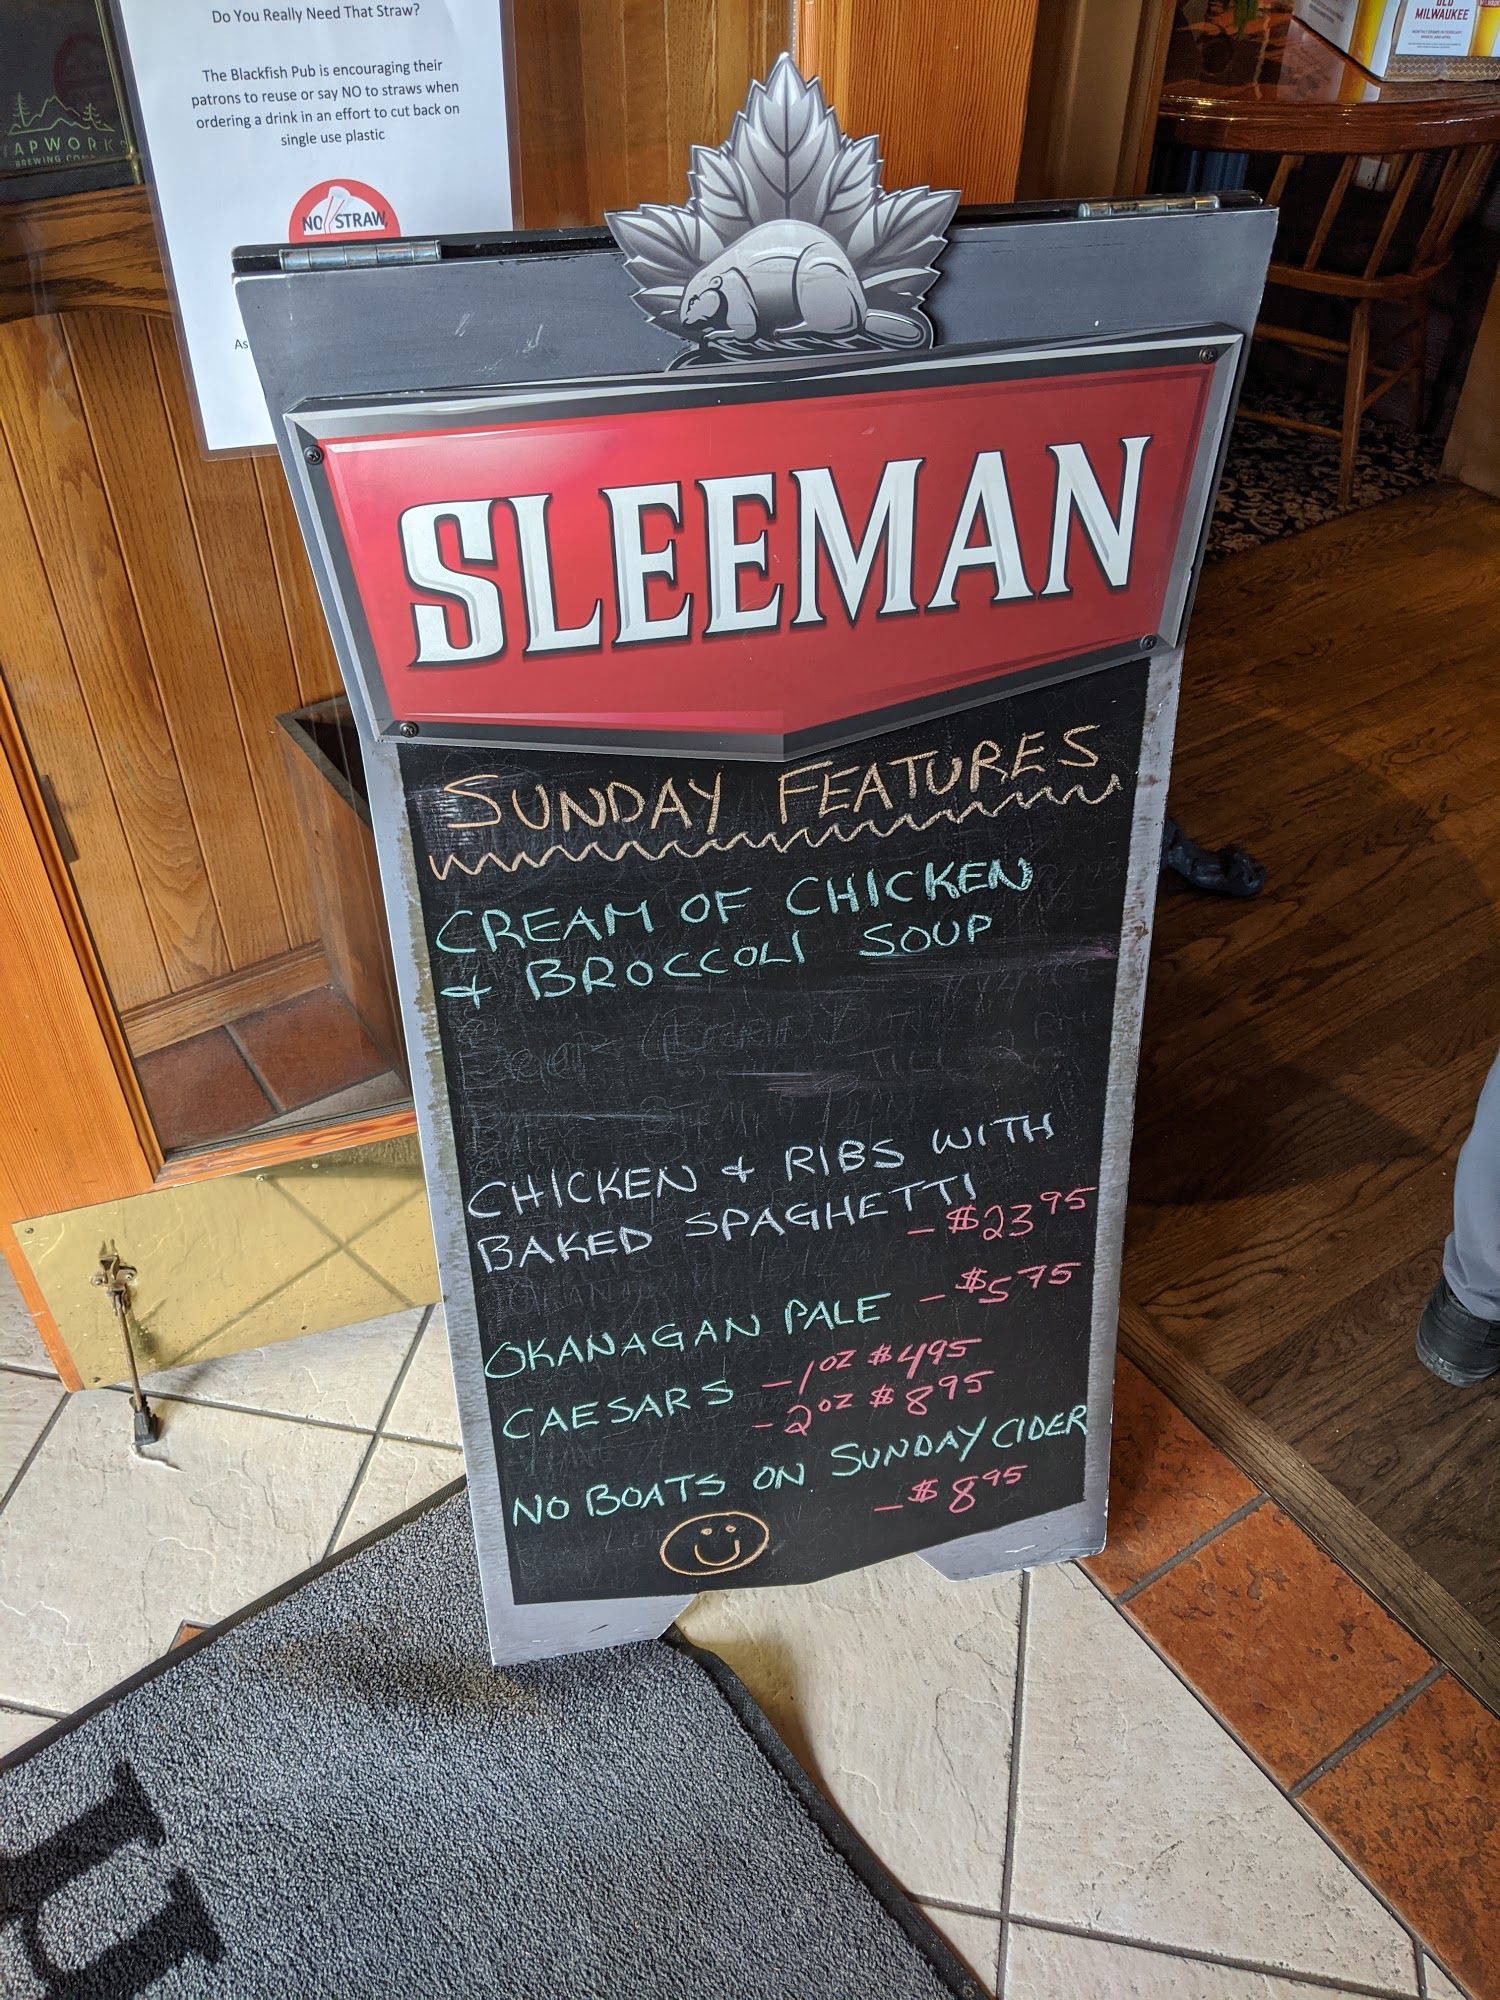 Do You Really Need That Straw?
The Blackfish Pub is encouraging their
patrons to reuse or say NO to straws when
ordering a drink in an effort to cut back on
single use plastic
NO STRAW
As
APWORKS
BREWING
OLD
MILWAUKEE
SLEEMAN
SUNDAY FEATURES
CREAM OF CHICKEN
& BROCCOLI SOUP
CHICKEN & RIBS WITH
BAKED SPAGHETTI - $23.95
OKANAGAN PALE - $5.75
CAESARS - 1 OZ $4.95
- 2 OZ $8.95
NO BOATS ON SUNDAY CIDER
- $8.95